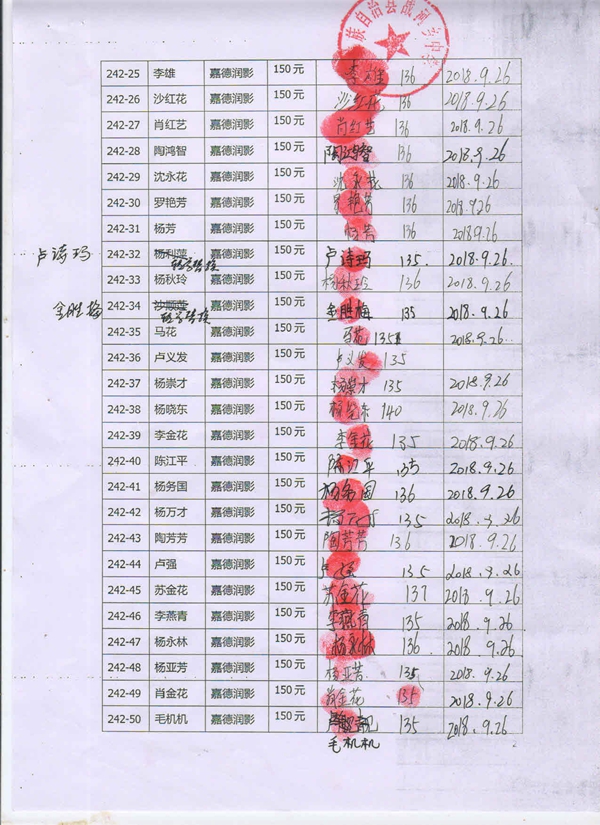 族自治县战河乡中学
242-25 李雄 嘉德润影 150元 李雄 136 2018.9.26
242-26 沙红花 嘉德润影 150元 沙红花 136 2018.9.26
242-27 肖红艺 嘉德润影 150元 肖红艺 136 2018.9.26
242-28 陶鸿智 嘉德润影 150元 陶鸿智 136 2018.9.26
242-29 沈永花 嘉德润影 150元 沈永花 136 2018.9.26
242-30 罗艳芳 嘉德润影 150元 罗艳芳 136 2018.9.26
242-31 杨芳 嘉德润影 150元 杨芳 136 2018.9.26
卢诗玛 242-32 杨利萍 嘉德润影 150元 卢诗玛 135. 2018.9.26
242-33 杨秋玲 嘉德润影 150元 杨秋玲 136 2018.9.26
金胜梅 242-34 嘉德润影 150元 金胜梅 135 2018.9.26
242-35 马花 嘉德润影 150元 马花 135 2018.9.26
242-36 卢义发 嘉德润影 150元 卢义发 135
242-37 杨崇才 嘉德润影 150元 杨崇才 135 2018.9.26
242-38 杨晓东 嘉德润影 150元 杨晓东 140 2018.9.26
242-39 李金花 嘉德润影 150元 李金花 135 2018.9.26
242-40 陈江平 嘉德润影 150元 陈江平 135 2018.9.26
242-41 杨务国 嘉德润影 150元 杨务国 136 2018.9.26
242-42 杨万才 嘉德润影 150元 135 2018.9.26
242-43 陶芳芳 嘉德润影 150元 陶芳芳 136 2018.9.26
242-44 卢强 嘉德润影 150元 卢强 135 2018.9.26
242-45 苏金花 嘉德润影 150元 苏金花 137 2018.9.26
242-46 李燕青 嘉德润影 150元 李燕青 135 2018.9.26
242-47 杨永林 嘉德润影 150元 杨永林 136 2018.9.26
242-48 杨亚芳 嘉德润影 150元 杨亚芳 135 2018.9.26
242-49 肖金花 嘉德润影 150元 肖金花 135 2018.9.26
242-50 毛机机 嘉德润影 150元 135 2018.9.26
毛机机